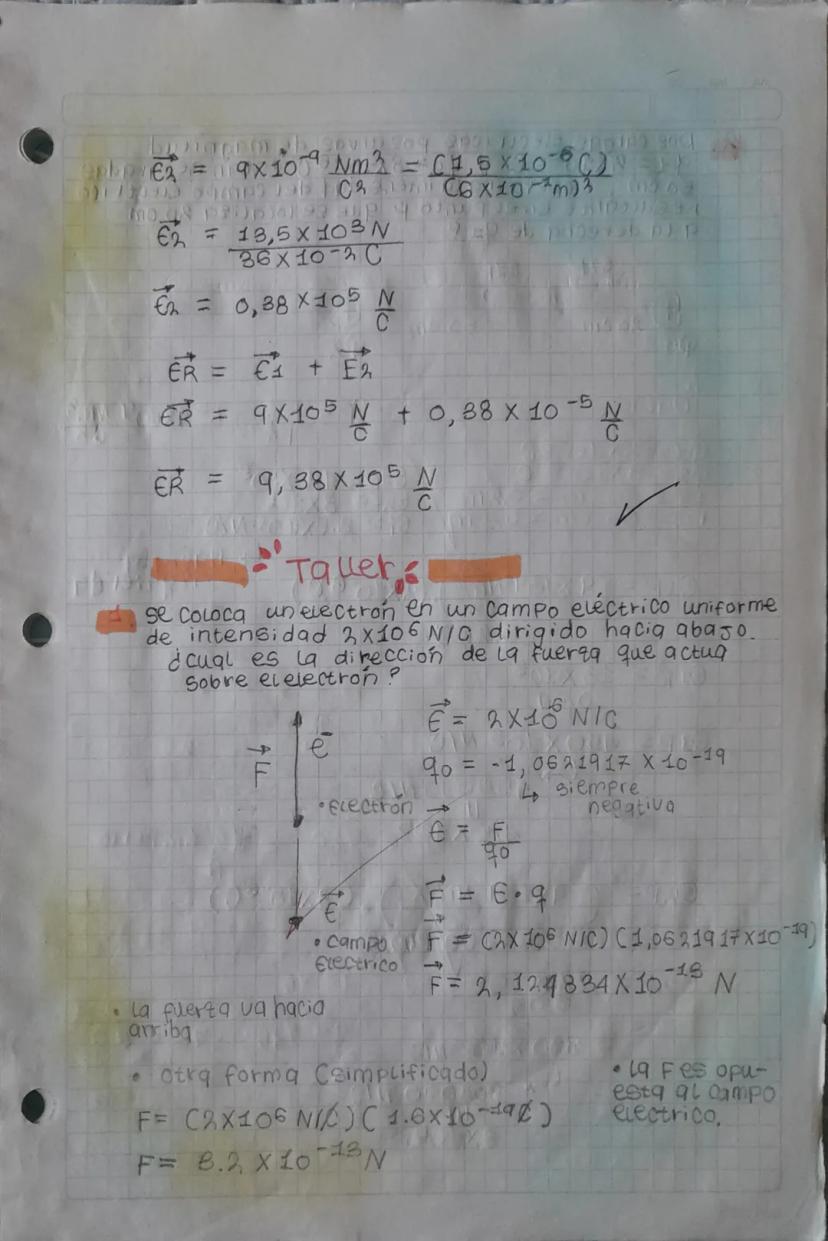 E2 = 9x10^-9 Nm2/C2 = (1,5 x 10^-6 C)/(6 x 10^-1m)2
E2 = 13,5 x 10^3 N/36 x 10^-2 C
E2 = 0,38 x 10^5 N/C
ER = E1 + E2
ER = 9 x 10^5 N/C + 0,38 x 10^-5 N/C
ER = 9,38 x 10^5 N/C
Taller
1. se coloca un electrón en un campo eléctrico uniforme
de intensidad 2x10^6 N/C dirigido hacia abajo.
¿cual es la dirección de la fuerza que actua
sobre el electrón?
E = 2x10^6 N/C
F
e-
q0 = -1,0621917 x 10^-19
↳ siempre
negativa
• electrón
E = F/q0
F = E • q
E
• campo
electrico
F = (2x10^6 N/C)(1,0621917x10^-19)
F = 2,124834x10^-13 N
• la fuerza va hacia
arriba
• otra forma (simplificado)
F = (2x10^6 N/C)(1.6x10^-19C)
F = 3.2 x 10^-13 N
• la F es opu-
esta al campo
electrico.